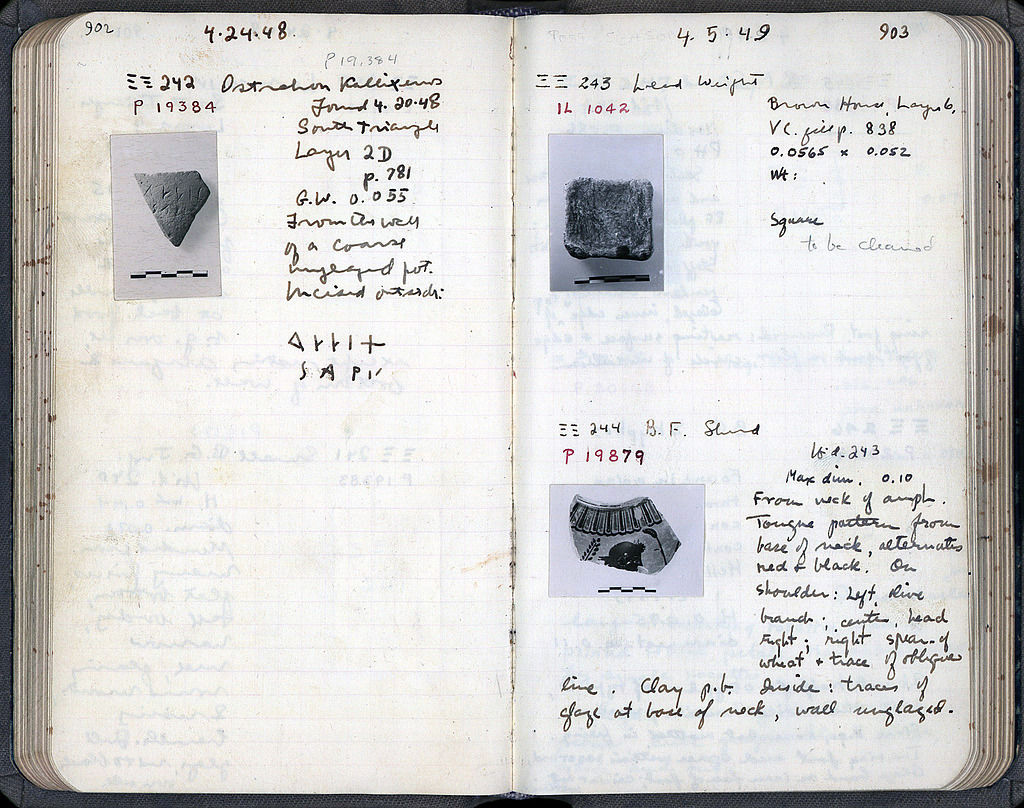 902
4.24.48
P 19,384
ΞΞ 242 Ostrakon Kallixenos
P 19384
Found 4.20.48
South Triangle
Layer 2D
p. 781
G.W. 0.055
From the wall
of a coarse
unglazed pot.
Incised outside:
4.5.49
903
ΞΞ 243 Lead Weight
IL 1042
Brown House, Layer 6,
VC. fill p. 838
0.0565 x 0.052
Wt:
Square
to be cleaned
ΞΞ 244 B.F. Sherd
P 19879
W.d. 243
Max dim. 0.10
From neck of amph.
Tongue pattern from
base of neck, alternates
red & black. On
shoulder: Left, olive
branch; center, head
right; right spear of
wheat & trace of oblique
line. Clay p.b. Inside: traces of
glaze at base of neck, wall unglazed.